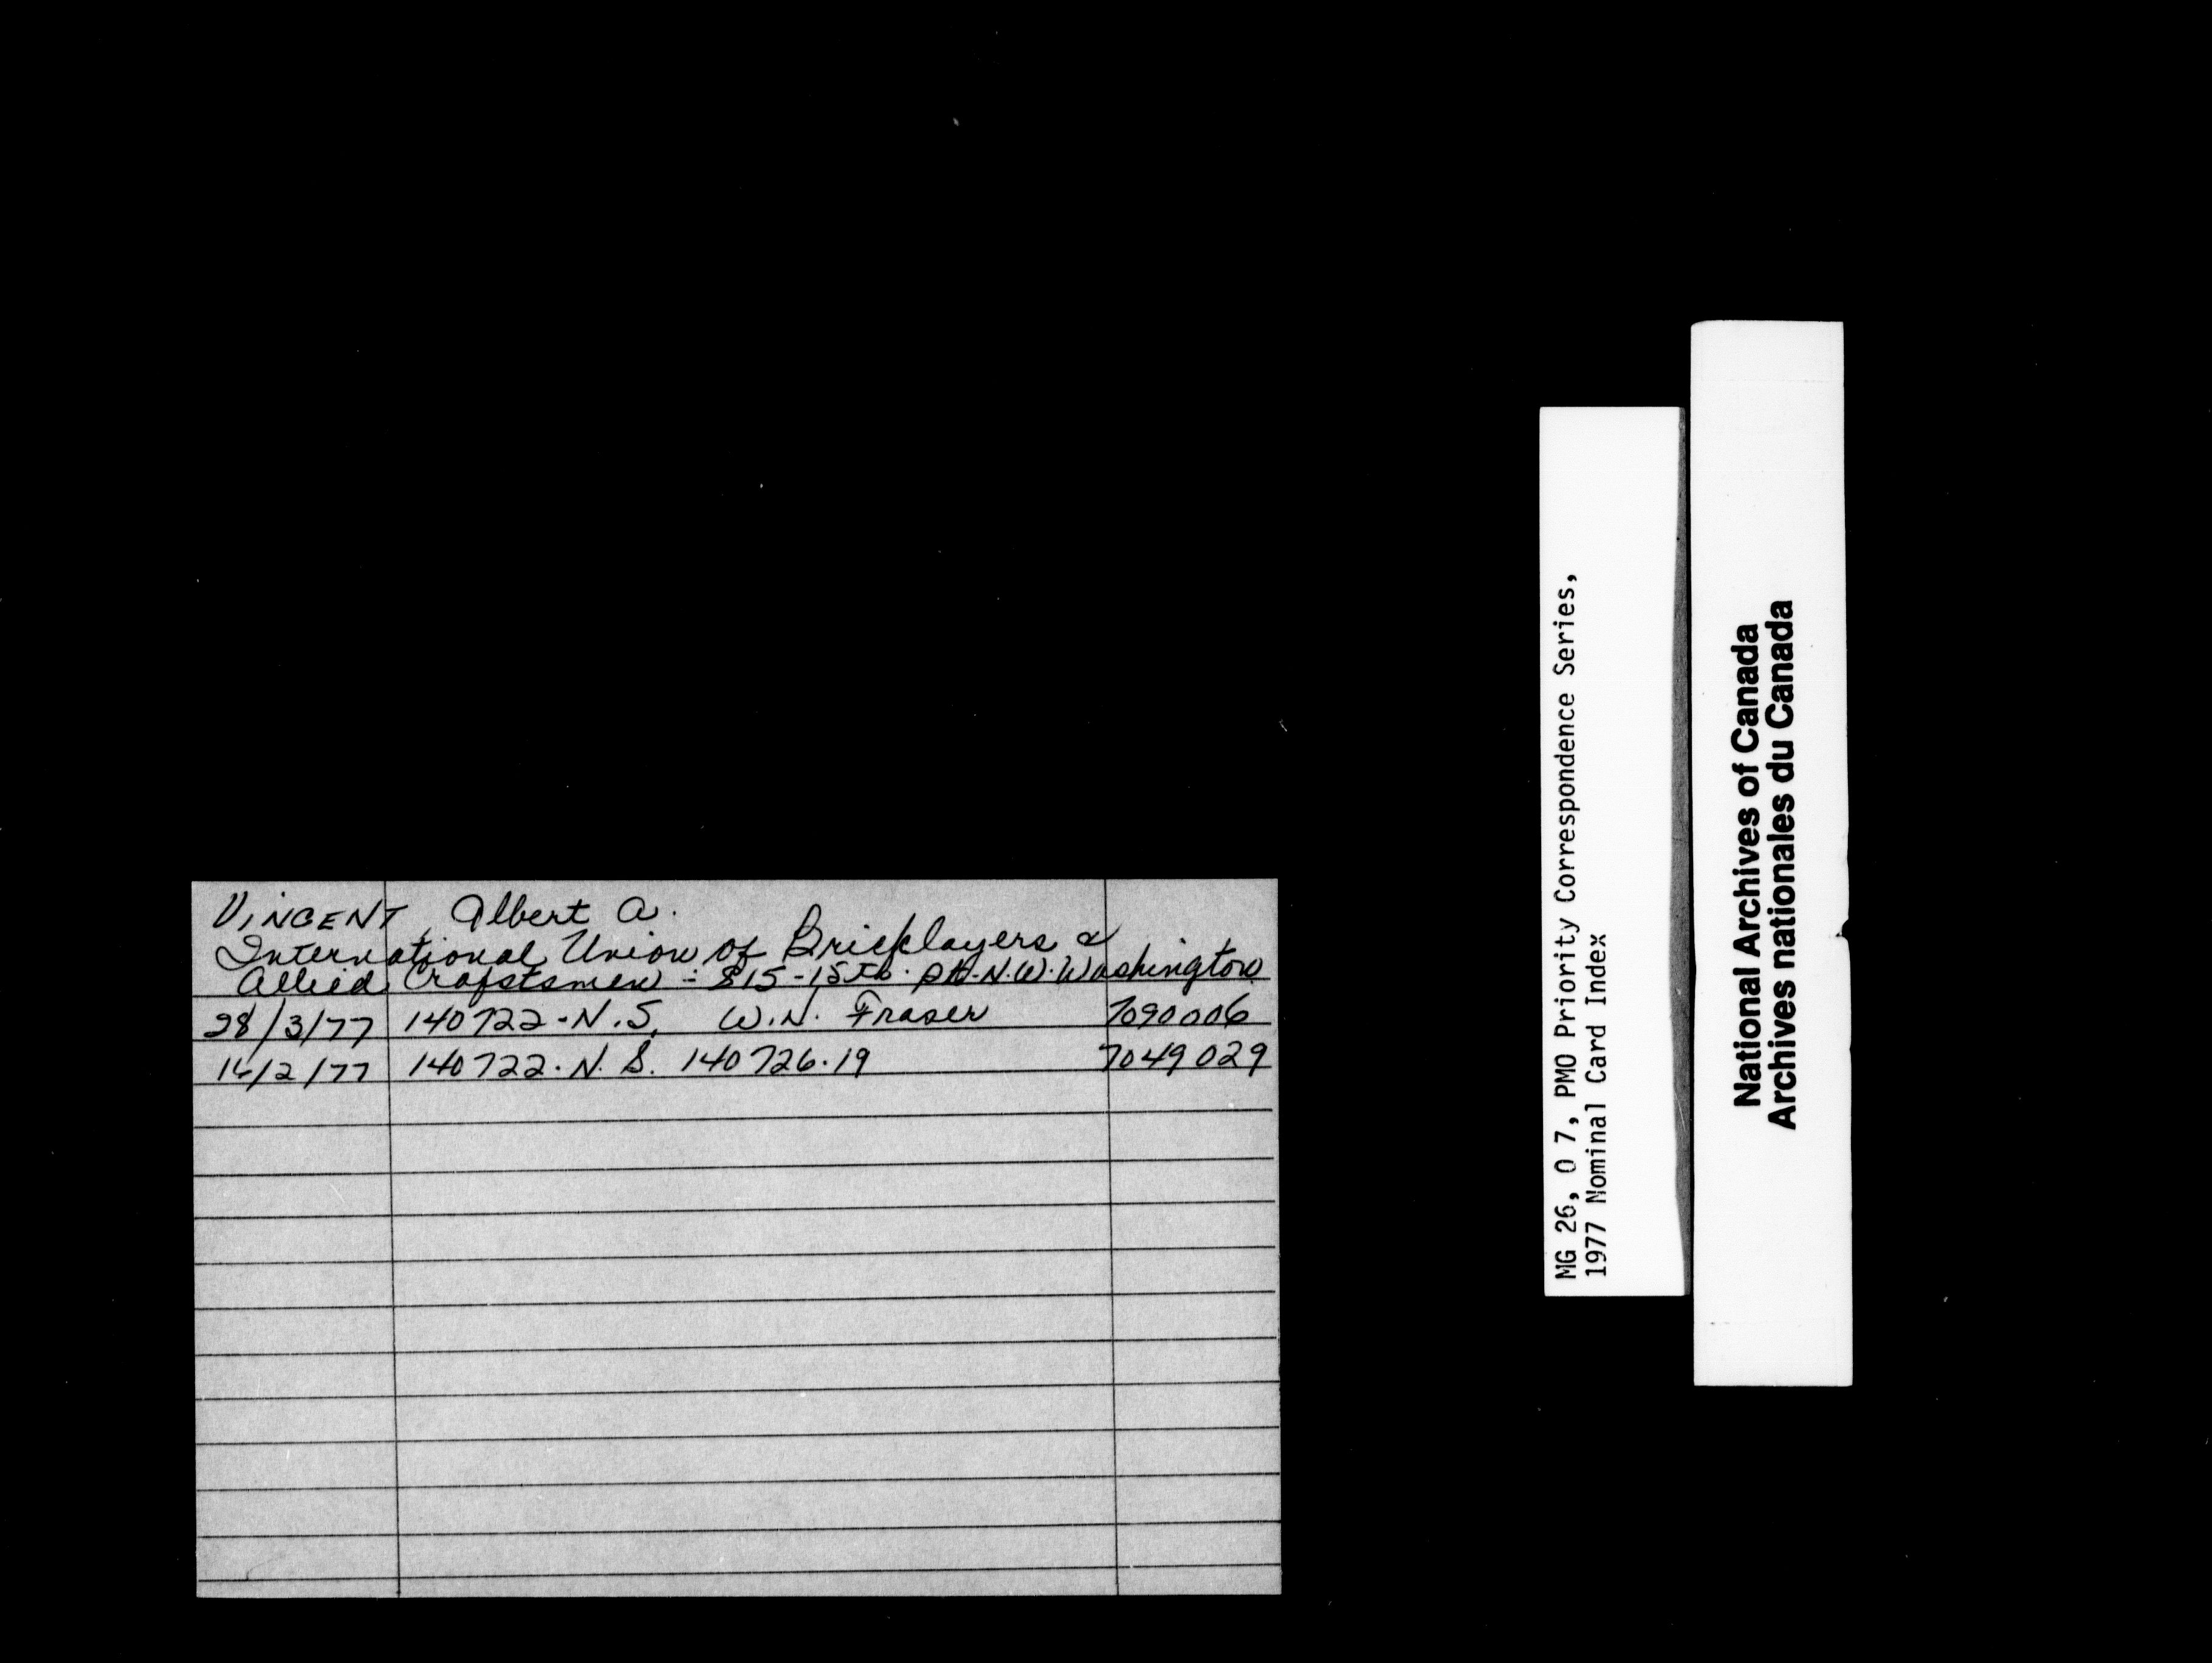 VINCENT, Albert A.
International Union of Bricklayers &
Allied Crafstsmen - 815-15th St. N.W. Washington
28/3/77 140722-N.S. W.N. Fraser 7090006
16/2/77 140722.N.S. 140726.19 7049029
MG 26, O 7, PMO Priority Correspondence Series,
1977 Nominal Card Index
National Archives of Canada
Archives nationales du Canada